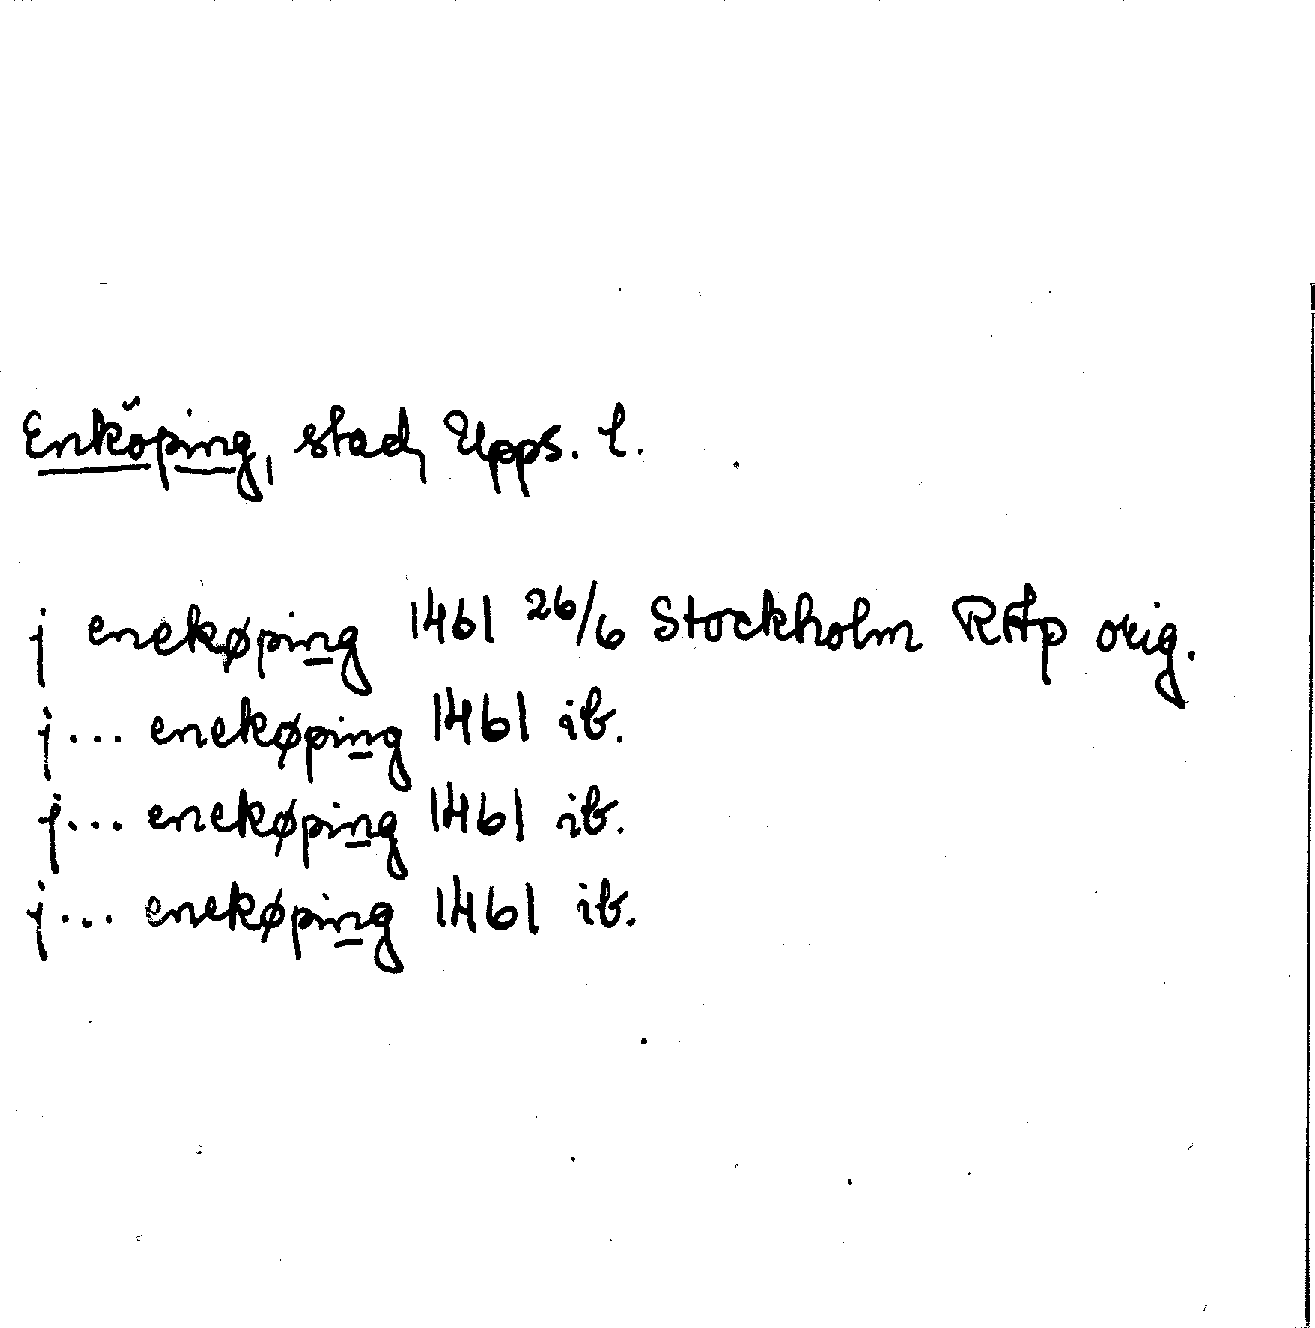 Enköping, stad, Upps. l.
j enekøping 1461 26/6 Stockholm RAp orig.
j... enekøping 1461 ib.
j... enekøping 1461 ib.
j... enekøping 1461 ib.